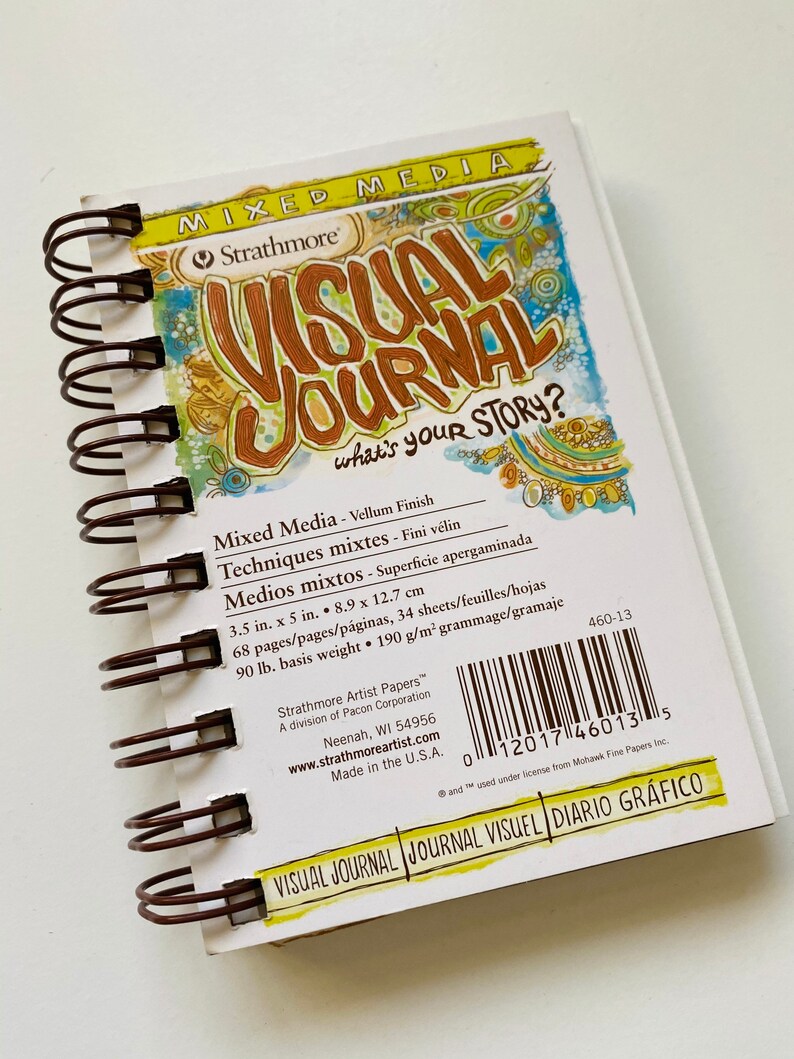 MIXED MEDIA
Strathmore®
VISUAL
JOURNAL
what's YOUR STORY?
Mixed Media - Vellum Finish
Techniques mixtes - Fini vélin
Medios mixtos - Superficie apergaminada
3.5 in. x 5 in. • 8.9 x 12.7 cm
68 pages/pages/páginas, 34 sheets/feuilles/hojas
90 lb. basis weight • 190 g/m² grammage/gramaje
460-13
Strathmore Artist Papers™
A division of Pacon Corporation
Neenah, WI 54956
www.strathmoreartist.com
Made in the U.S.A.
0 12017 46013 5
® and ™ used under license from Mohawk Fine Papers Inc.
VISUAL JOURNAL | JOURNAL VISUEL | DIARIO GRÁFICO